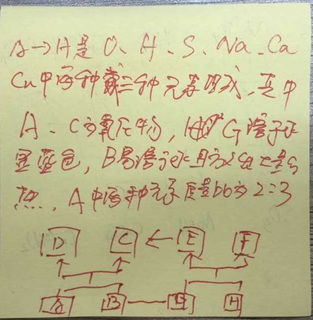 A→H是O、H、S、Na、Ca
Cu中两种或三种元素组成,其中
A、C为氧化物,
G溶于水
显蓝色,B易溶于水且放出大量的
热,A中两种元素质量比为2:3
D C ← E F
A B — G H